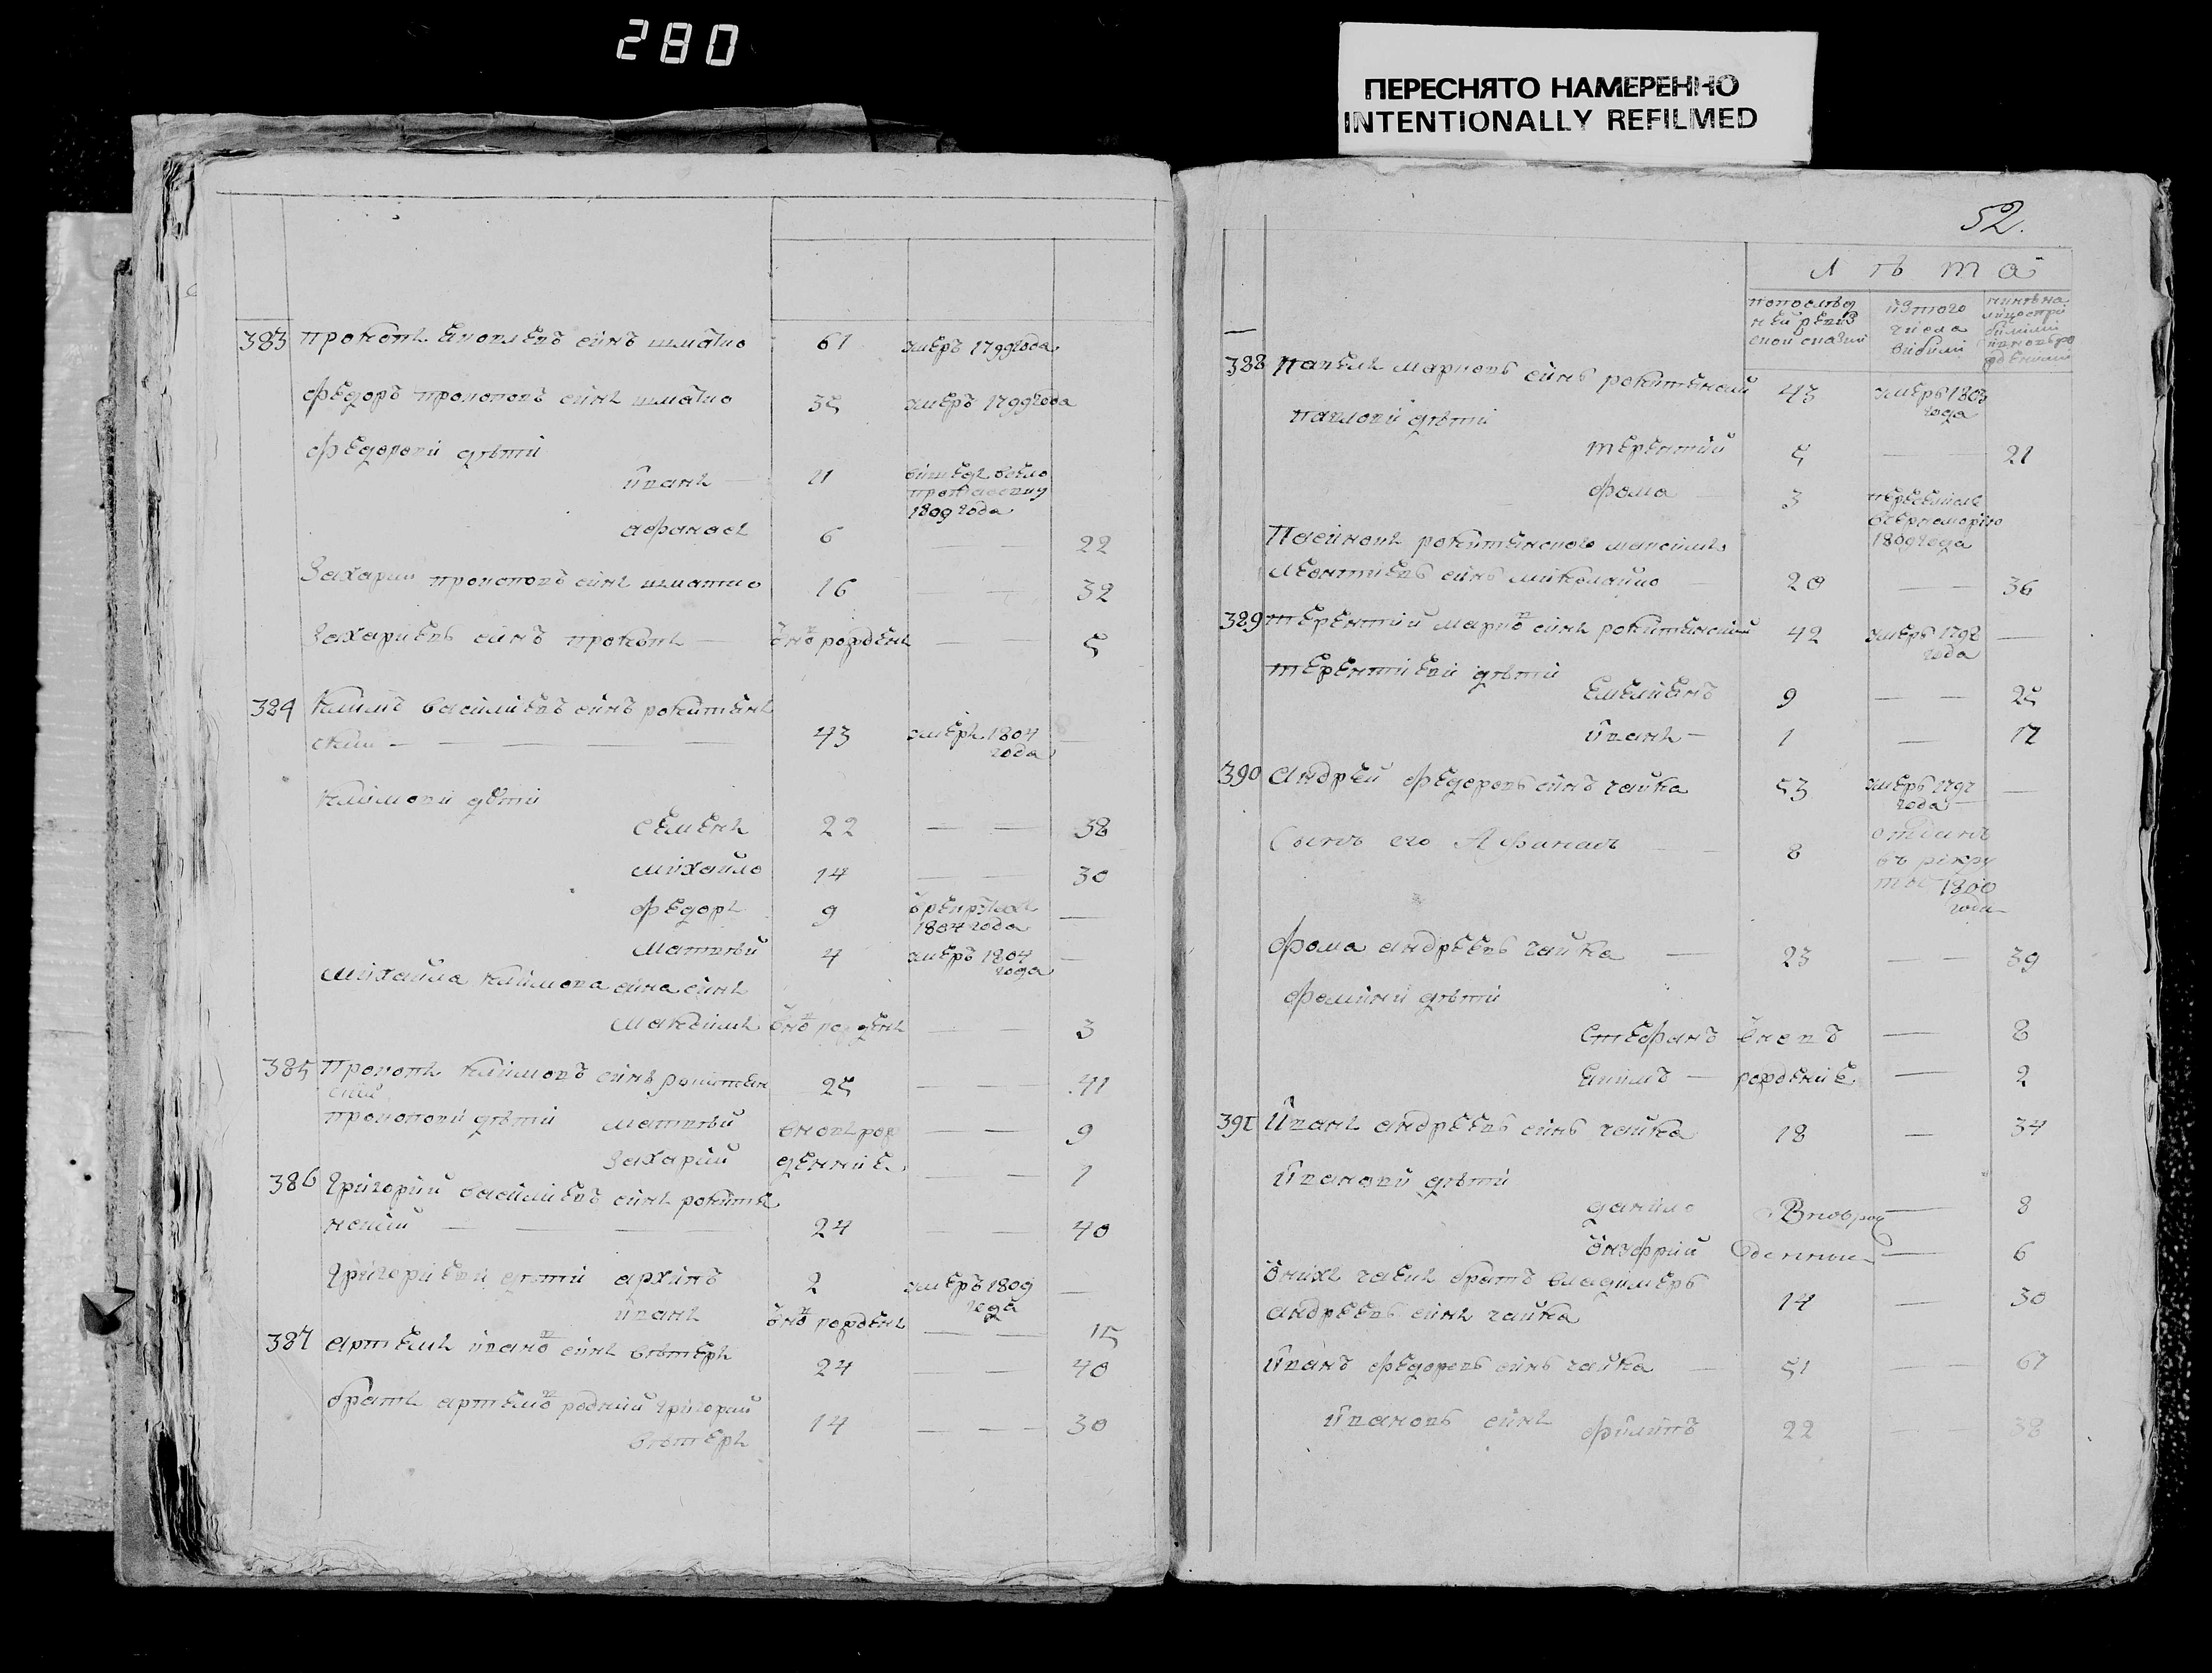 280
ПЕРЕСНЯТО НАМЕРЕННО
INTENTIONALLY REFILMED
383 прокопъ сынъ шматко 61 умеръ 1799 года
федоръ прокоповъ сынъ шматко 35 умеръ 1799 года
федорови дѣти
иванъ 11
1809 года
афанасъ 6 — — 22
Захарий прокоповъ сынъ шматко 16 — — 32
Захариевъ сынъ прокопъ — вновъ рожденъ — — 5
384 Климъ василиевъ сынъ рокитян
ский — — — — 43 умеръ 1804 года —
климови дѣти
семенъ 22 — — 38
михайло 14 — — 30
федоръ 9 1804 года —
матвѣй 4 умеръ 1804 года —
михайла климова сина синъ
максимъ вновъ рожденъ — — 3
385 Прокопъ климовъ синъ рокитян
ский 25 — — 41
прокопови дѣти матвѣй вновъ рож — — 9
Захарий денние — — 1
386 Григорий василиевъ синъ рокитя
нский — — — 24 — 40
Григориеви дѣти архипъ 2 умеръ 1809 года —
иванъ вновъ рожденъ — — 15
387 артемъ ивановъ синъ вѣтеръ 24 — — 40
братъ артемовъ родний григорий
вѣтеръ 14 — — 30
52.
Л ѣ т а
попослѣд
ней ревиз
ской сказки
изтого
числа
вибили
388 Павелъ марковъ синъ рокитянский 43 умеръ 1803 года
павлови дѣти
терентий 5 — — 21
фома 3
вчерноморию
1809 года
Пасинокъ рокитянского максимъ
леонтиевъ синъ миколайко — 20 — — 36
389 терентий марковъ синъ рокитянский 42 умеръ 1792 года —
терентиеви дѣти
емелиянъ 9 — — 25
иванъ — 1 — 17
390 андрей федоровъ синъ чайка 53 умеръ 1797 года —
Сынъ его Афанасъ — — 8
отданъ
въ рекру
тъ 1800
года
фома андреевъ чайка — 23 — — 39
фомини дѣти
стефанъ вновъ — 8
екимъ — рождение — 2
391 Иванъ андреевъ синъ чайка 18 — 34
Иванови дѣти
данило Вновъ рож — 8
онуфрий денные — 6
онихъ чаекъ братъ владимеръ
андреевъ синъ чайка 14 — 30
Иванъ федоровъ синъ чайка — 51 — — 67
Ивановъ синъ филипъ 22 — — 38